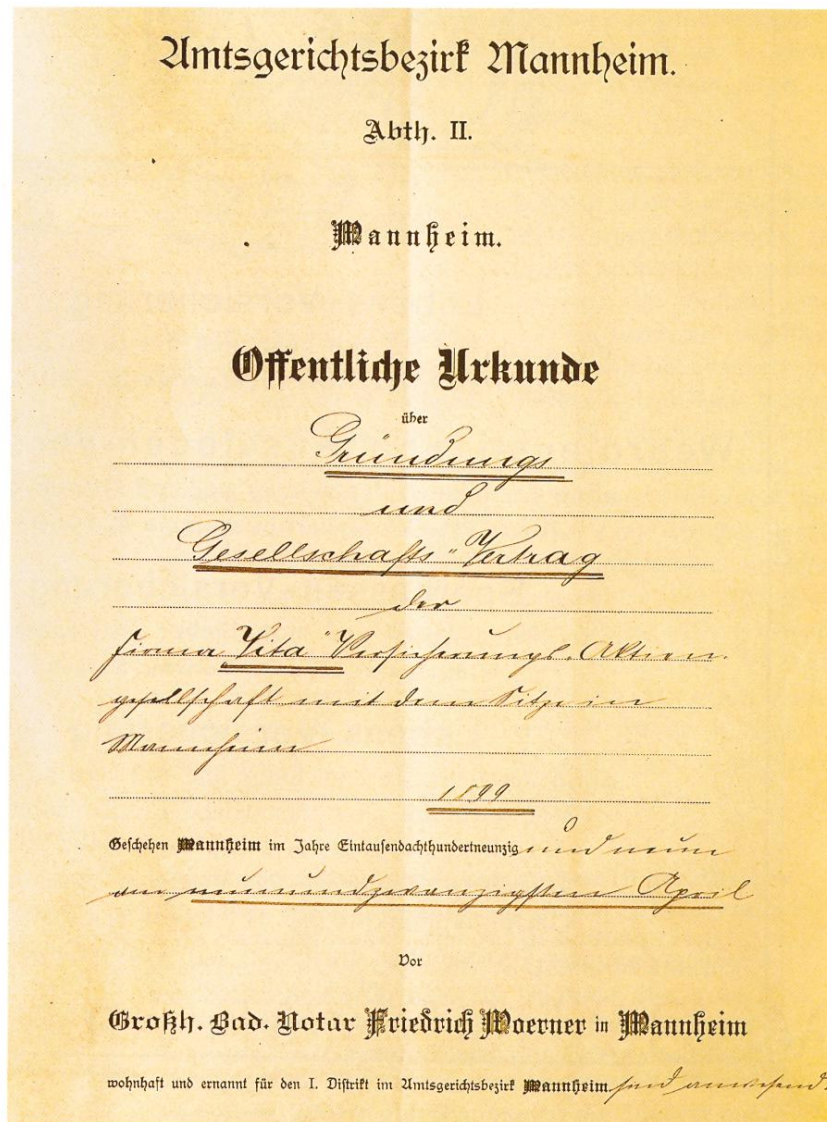 Amtsgerichtsbezirk Mannheim.
Abth. II.
Mannheim.
Öffentliche Urkunde
über
Gründungs
und
Gesellschafts"Vertrag
der
Firma "Vita" Versicherungs-Aktien-
gesellschaft mit dem Sitze in
Mannheim
1899
Geschehen Mannheim im Jahre Eintausendachthundertneunzig und neun
am neunundzwanzigsten April
Vor
Großh. Bad. Notar Friedrich Woerner in Mannheim
wohnhaft und ernannt für den I. Distrikt im Amtsgerichtsbezirk Mannheim sind anwesend: